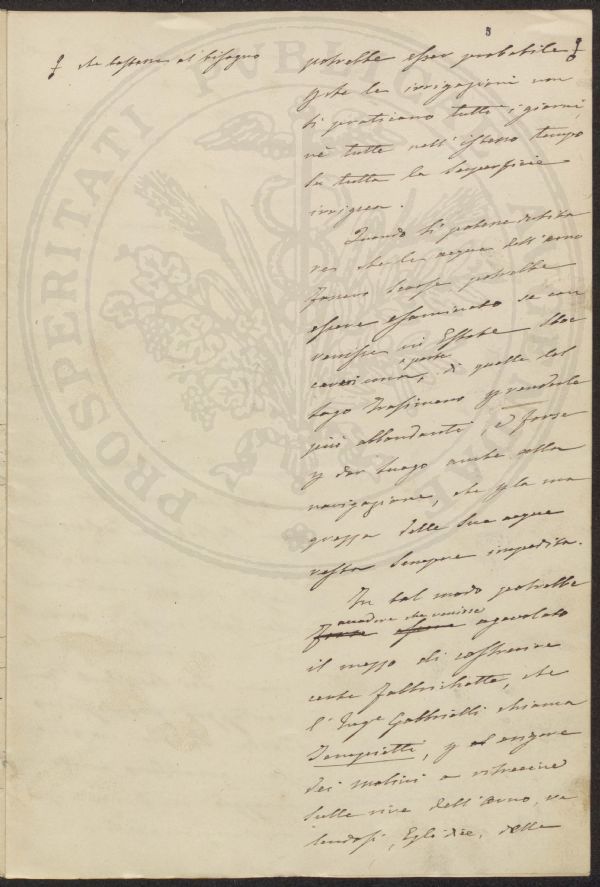 3
che bastasse al bisogno
potrebbe esser probabile
che le irrigazioni non
si praticano tutti i giorni
nè tutte nell'istesso tempo
su tutta la superficie
irrigua.
Quando si potesse dubita
re, che le acque dell'Arno
fossero scarse potrebbe
essere esaminato se con
venisse in Estate
una parte di quelle del
lago Trasimeno renderle
più abbondanti e forse
dar luogo anche alla
navigazione, che la ma
grezza delle sue acque
resta sempre impedita.
In tal modo potrebbe
accadere che venisse
forse essere agevolato
il mezzo di costruire
certe fabbrichette, che
l'Ing.e Gabbrielli chiama
, ed ergere
dei molini a ritrecine
sulle rive dell'Arno, va
lendosi, Egli dice, delle
PROSPERITATI PUBLICAE